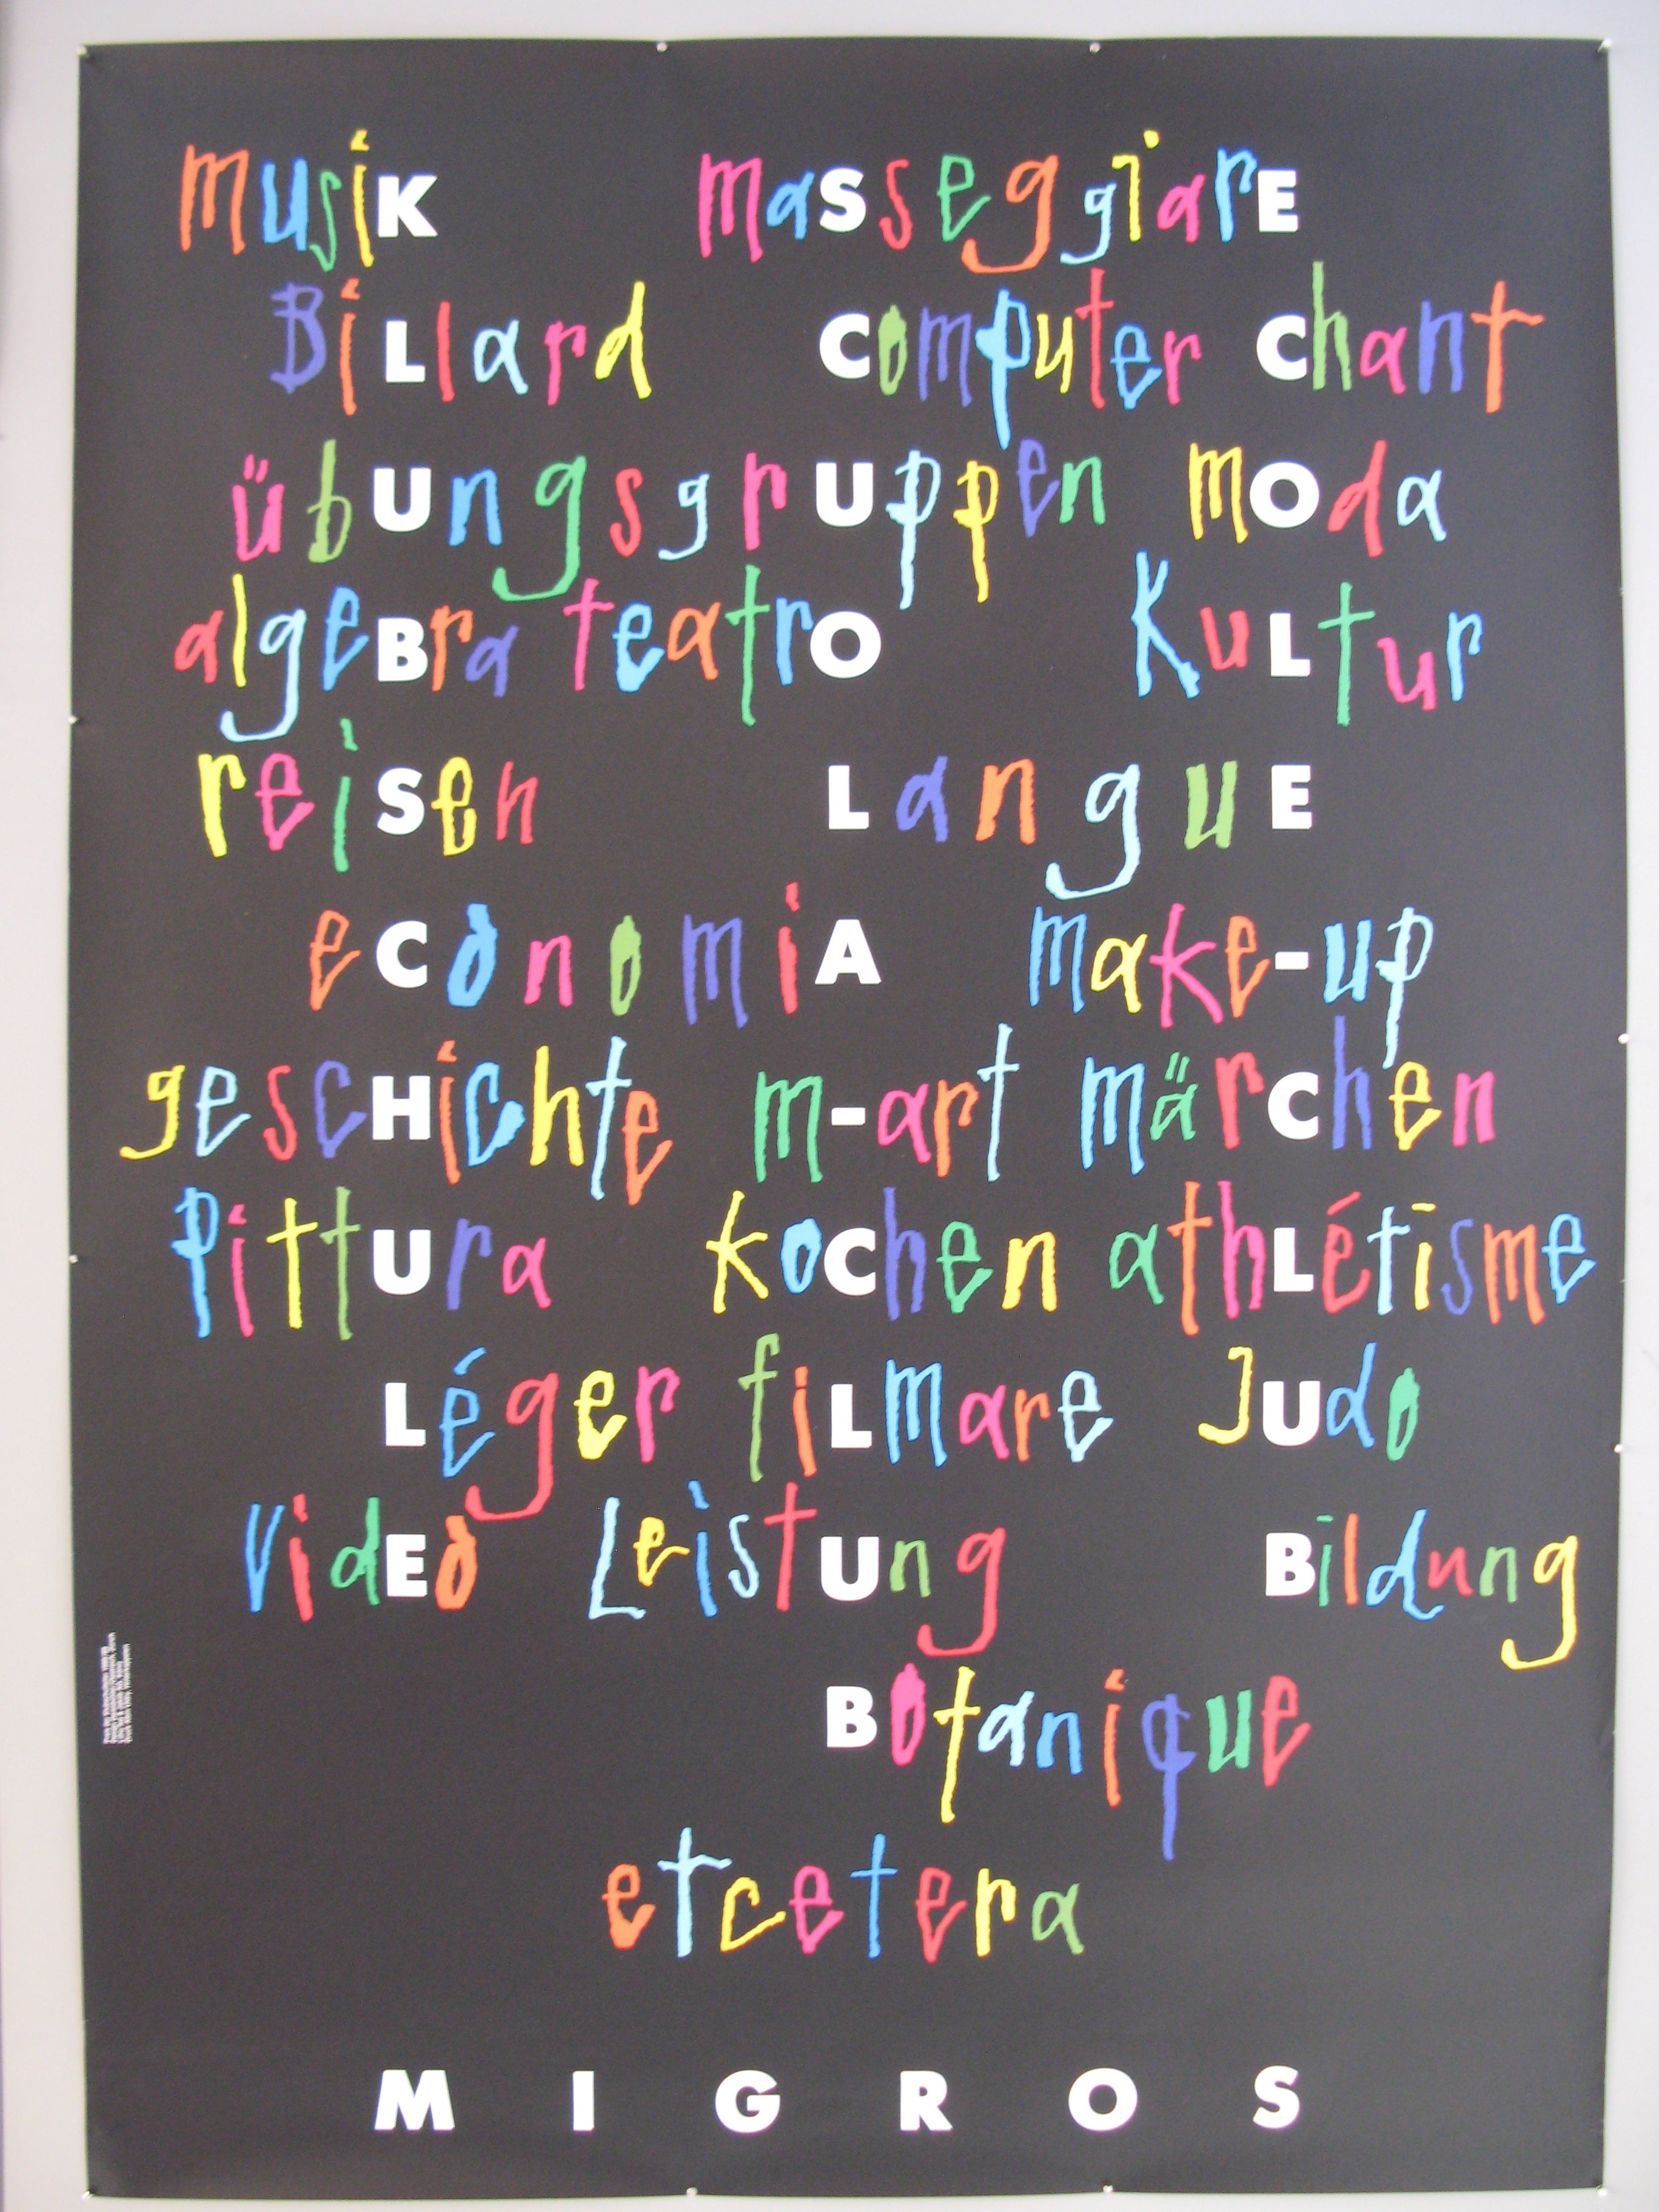 musiK maSseggiarE
BiLlard Computer Chant
übUngsgrUppen mOda
algeBra teatrO KuLtur
reiSen LanguE
eConomiA make-up
gescHichte m-art märChen
PittUra koChen athLétisme
Léger fiLmare JUdo
VidEo LeistUng Bildung
Botanique
etcetera
MIGROS